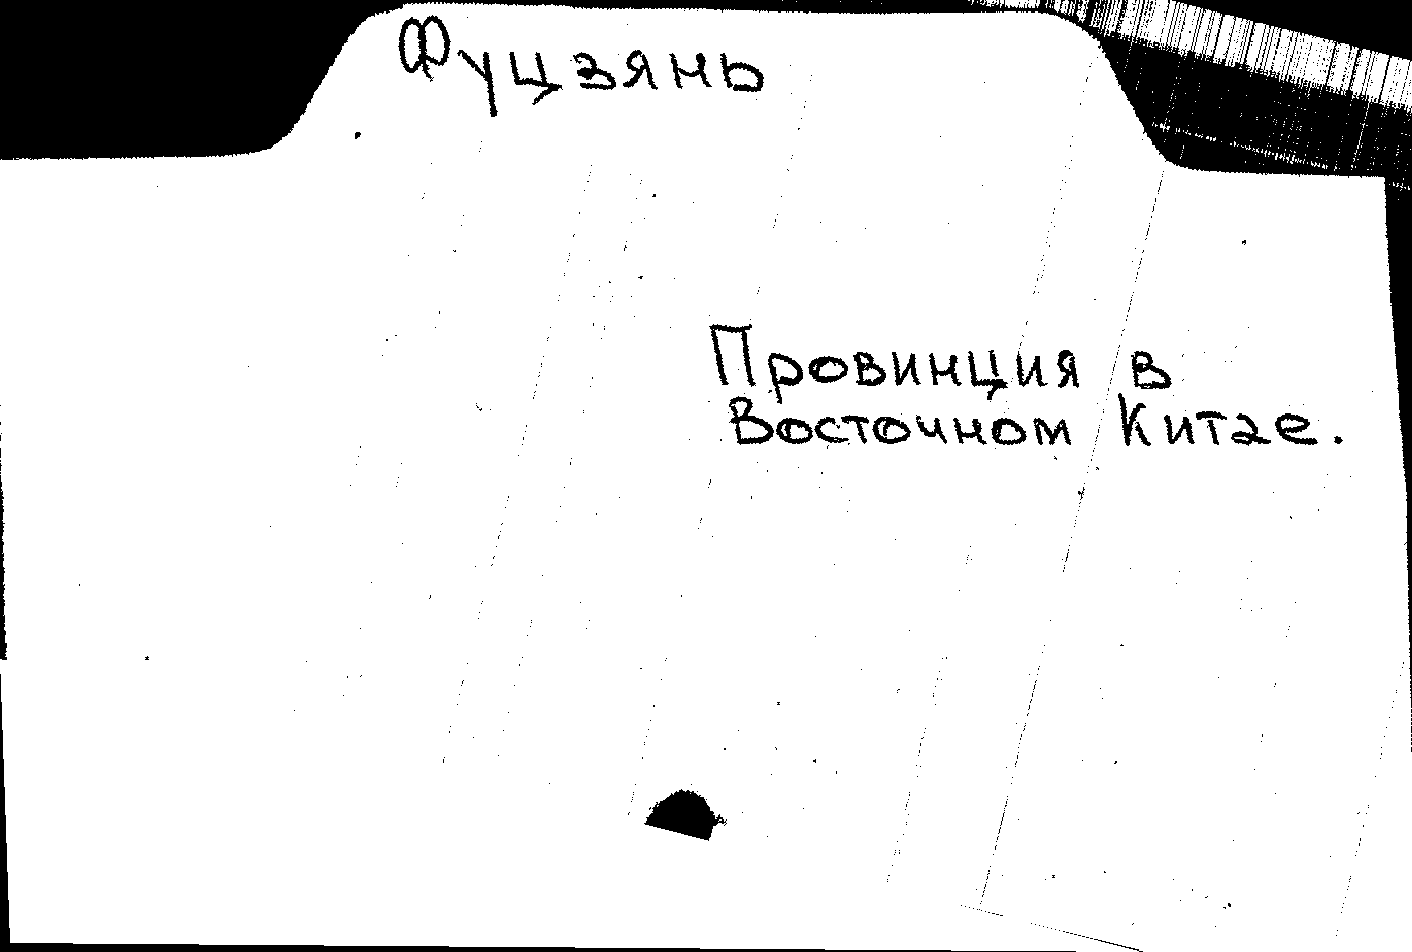 Фуцзянь
Провинция в
Восточном Китае.